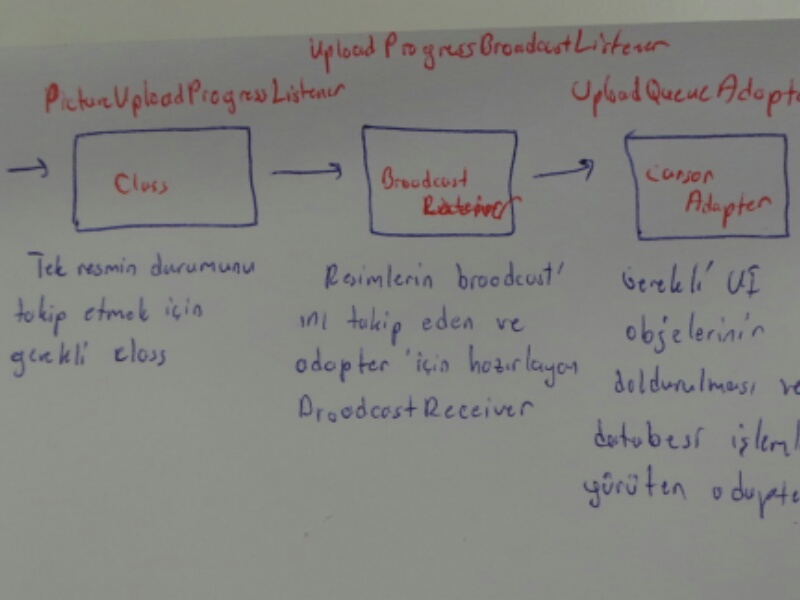 UploadProgressBroadcastListener
PictureUploadProgressListener
UploadQueueAdapt
Class
Broadcast
Cursor
Adapter
Tek resmin durumunu
takip etmek için
gerekli class
Resimlerin broadcast'
ini takip eden ve
adapter için hazırlayan
BroadcastReceiver
Gerekli UI
objelerinin
doldurulması ve
databesi işleml
yürüten adapte